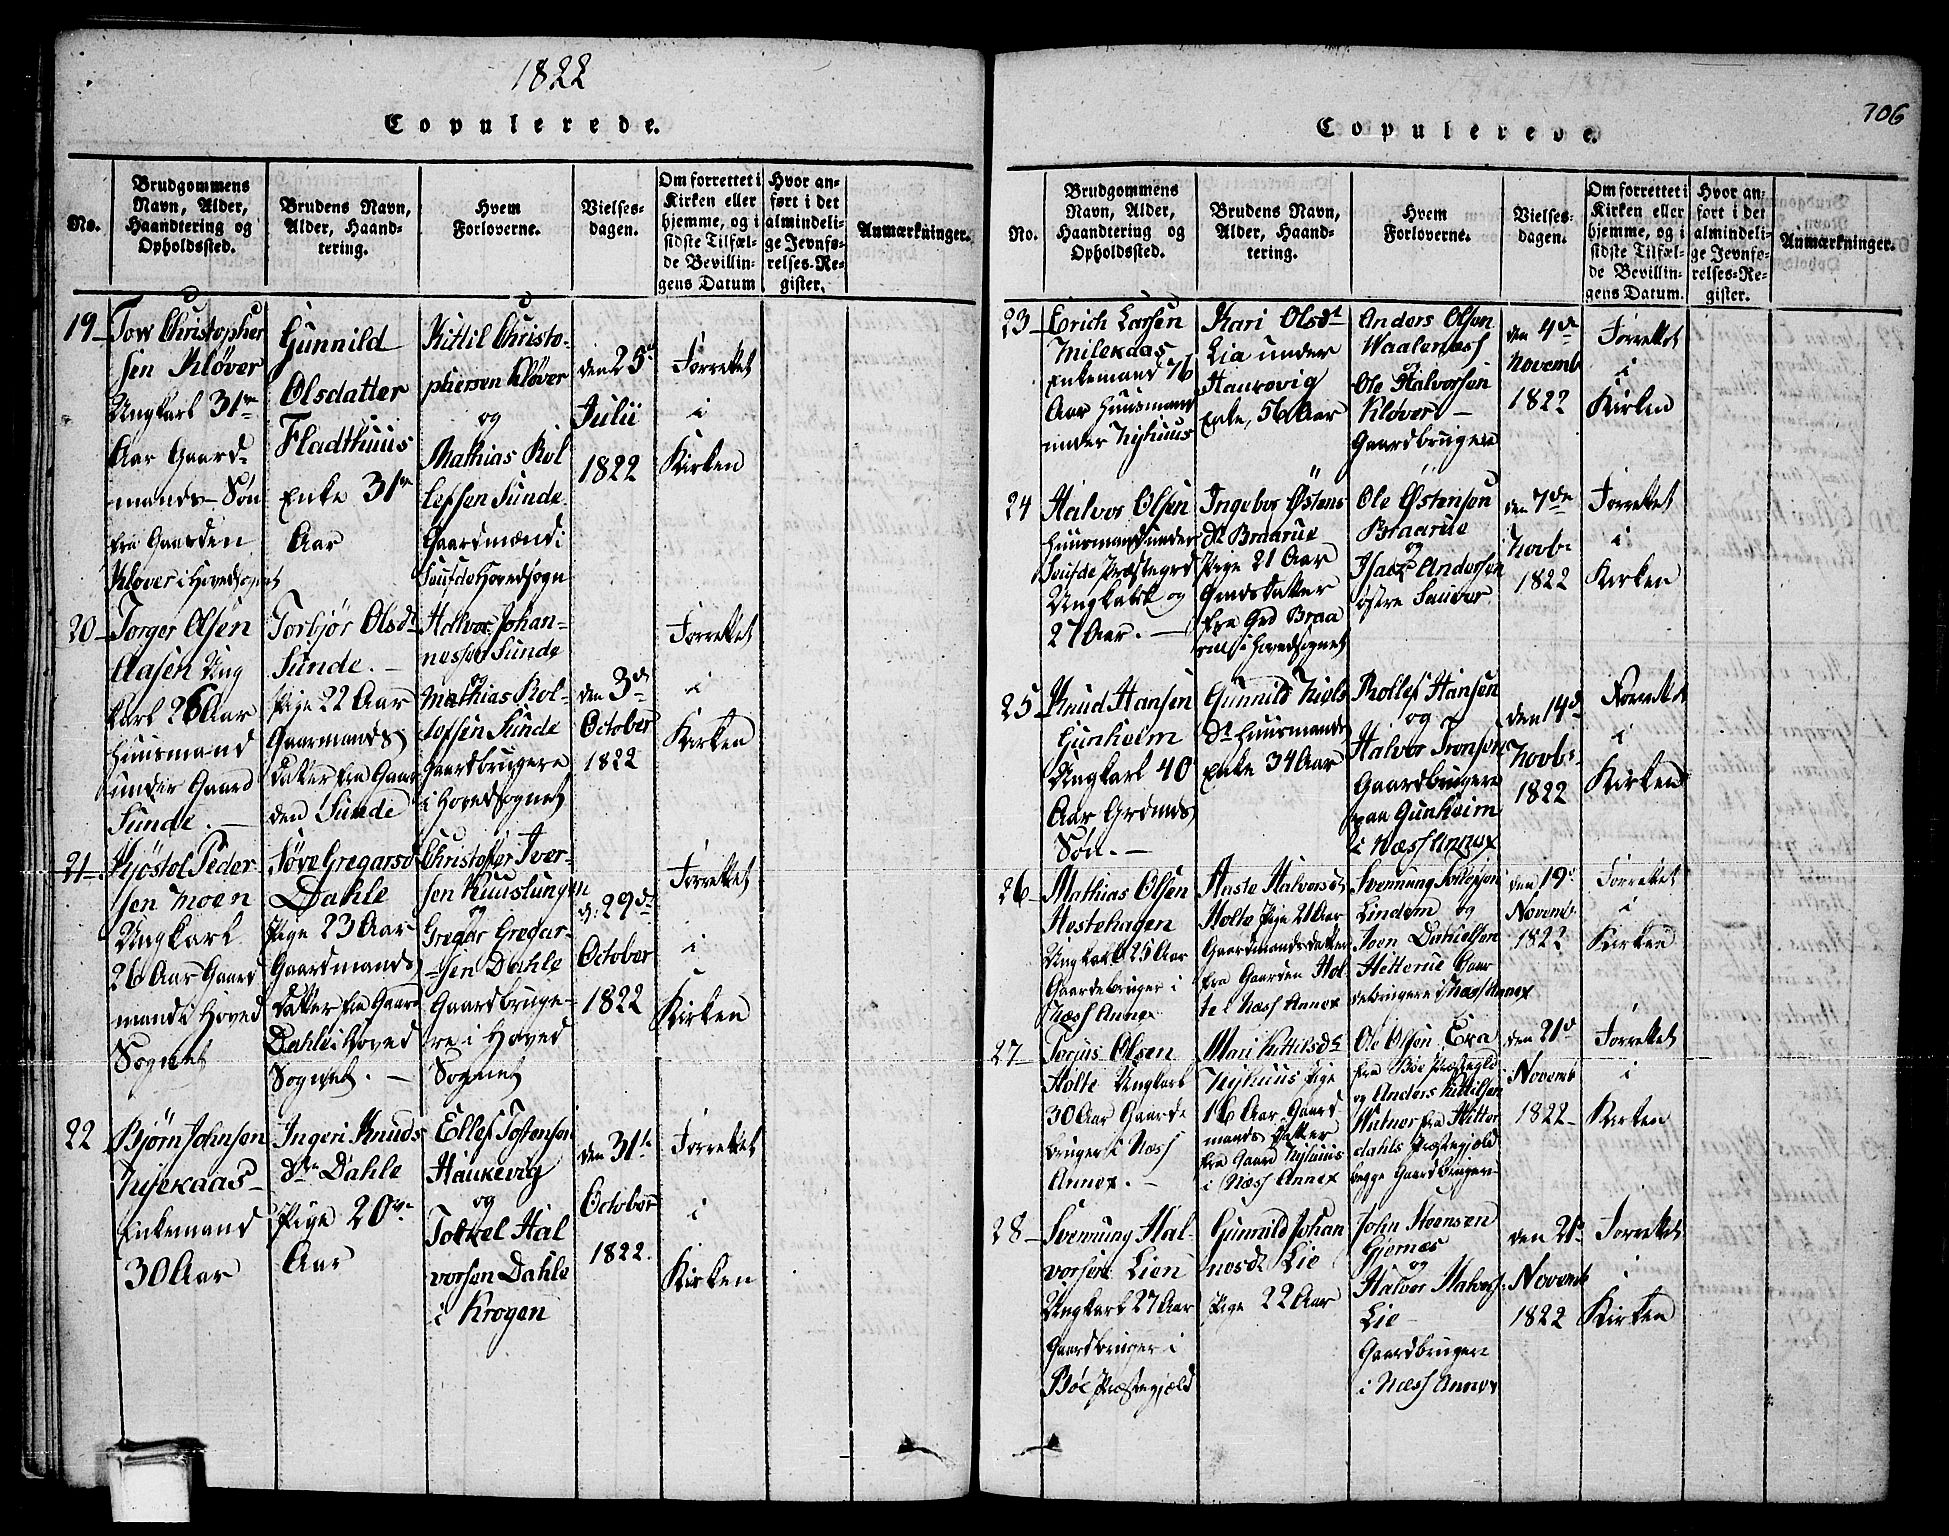 1822
Copulerede.
No.
Brudgommens
Navn, Alder,
Haandtering og
Opholdssted.
Brudens Navn,
Alder, Haand-
tering.
Hvem
Forloverne.
Vielses-
dagen.
Om forrettet i
Kirken eller
hjemme, og i
sidste Tilfæl-
de Bevillin-
gens Datum
Hvor an-
ført i det
almindeli-
ge Jevnfø-
relses-Re-
gister.
Anmærkninger.
19
Tov Christopher
sen Kløver
Ungkarl 31te
Aar Gaard-
mands Søn
fra Gaarden
Kløver i Hovedsognet
Gunnild
Olsdatter
Fladthuus
Enke 31te
Aar
Kittil Christo-
phersen Kløver
og
Mathias Rol
lefsen Sunde
Gaardmænd i
Hovedsogn
den 25d
Julii
1822
Forrettet
i
Kirken
20
Torger Olsen
Aasen Ung
karl 26 Aar
Huusmand
under Gaard
Sunde.
Torbjør Olsdt
Sunde.
Pige 22 Aar
Gaarmands
Datter fra Gaar
den Sunde
Halvor Johan-
nessen Sunde
og
Mathias Rol-
lefsen Sunde
Gaardbrugere
i Hovedsognet
den 3d
October
1822
Forrettet
i
Kirken
21
Kjøstol Peder-
sen Moen
Ungkarl
26 Aar Gaard
mand i Hoved
Sognet
Tøve Gregarsd
Dahle
Pige 23 Aar
Gaardmands
Datter fra Gaard
Dahle i Hoved
Sognet.
Christoffer Iver-
sen
og
Gregar Gregar-
sen Dahle
Gaardbruge-
re i Hoved
Sognet
d: 29d
October
1822
Forrettet
i
Kirken
22
Bjørn Johnsen
Enkemand
30 Aar
Ingeri Knuds
dtr Dahle
Pige 20ve
Aar
Ellef Tostensen
Haukevig
og
Torkel Hal
vorsen Dahle
i Krogen
den 31te
October
1822.
Forrettet
i
Kirken
106
Copulerede.
No.
Brudgommens
Navn, Alder,
Haandtering og
Opholdssted.
Brudens Navn,
Alder, Haand-
tering.
Hvem
Forloverne.
Vielses-
dagen.
Om forrettet i
Kirken eller
hjemme, og i
sidste Tilfæl-
de Bevillin-
gens Datum.
Hvor an-
ført i det
almindeli-
ge Jevnfø-
relses-Re-
gister.
Anmærkninger.
23
Erich Larsen
Enkemand 76
Aar Huusmand
under Nyhuus
Kari Olsdt
Lia under
Haukevig
Enke, 56 Aar
Anders Olsen
Waalenæss
og
Ole Halvorsen
Kløver
Gaardbrugere
den 4de
Novemb
1822
Forrettet
i
Kirken
24
Halvor Olsen
Huusmand under
Præstegrd
Ungkarl og
27 Aar.
Ingebor Østens
dt Braarue
Pige 21 Aar
Gmds Datter
fra Grd Braa
rue i Hovedsognet
Ole Østensen
Braarue
og
Isaek Andersen
østre Sauver
den 7de
Novbr
1822
Forrettet
i
Kirken
25
Knud Hansen
Gunheim
Ungkarl 40
Aar Grdmds
Søn.
Gunild Niels
dt Huusmands
Enke 34 Aar
Rollef Hansen
og
Halvor Tronsen
Gaardbrugere
paa Gunheim
i Næss Annex
den 14d
Novbr
1822
Forrettet
i
Kirken
26
Mathias Olsen
Hestehagen
Ungkarl 25 Aar
Gaardebruger i
Næss Annex
Aaste Halvorsdt
Holte Pige 21 Aar
Gaardmandsdatter
fra Gaarden Hol
te i Næss Annex
Svennung
Lindem og
Joen Danielsen
Hetterue Gaar
debrugere i Næss Annex
den 19d
Novemb
1822
Forrettet
i
Kirken
27
Torjus Olsen
Holte Ungkarl
30 Aar Gaarde
bruger i Næss
Annex.
Mari Kittilsdt
Nyhuus Pige
16 Aar Gaard
mands Datter
fra Gaard Nyhuus
i Næss Annex
Ole Olsen Eva
fra Bøe Præstegld
og Anders Kittilsen
fra Hitter
dahls Præstegjeld
begge Gaardbrugere
den 21d
Novemb
1822
Forrettet
i
Kirken
28
Svennung Hal-
vorsen Lien
Ungkarl 27 Aar
Gaardbruger i
Bøe Præstegjeld
Gunnild Johan
nesdt Lie
Pige 22 Aar
John Steensen
Gjernæs
og
Halvor Halvors
Lie
Gaardbrugere
i Næss Annex
den 21d
Novemb
1822
Forrettet
i
Kirken